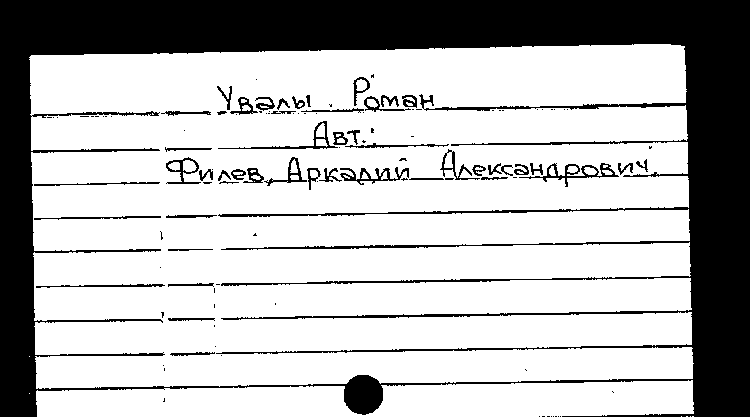 Увалы. Роман
Авт.:
Филев, Аркадий Александрович.